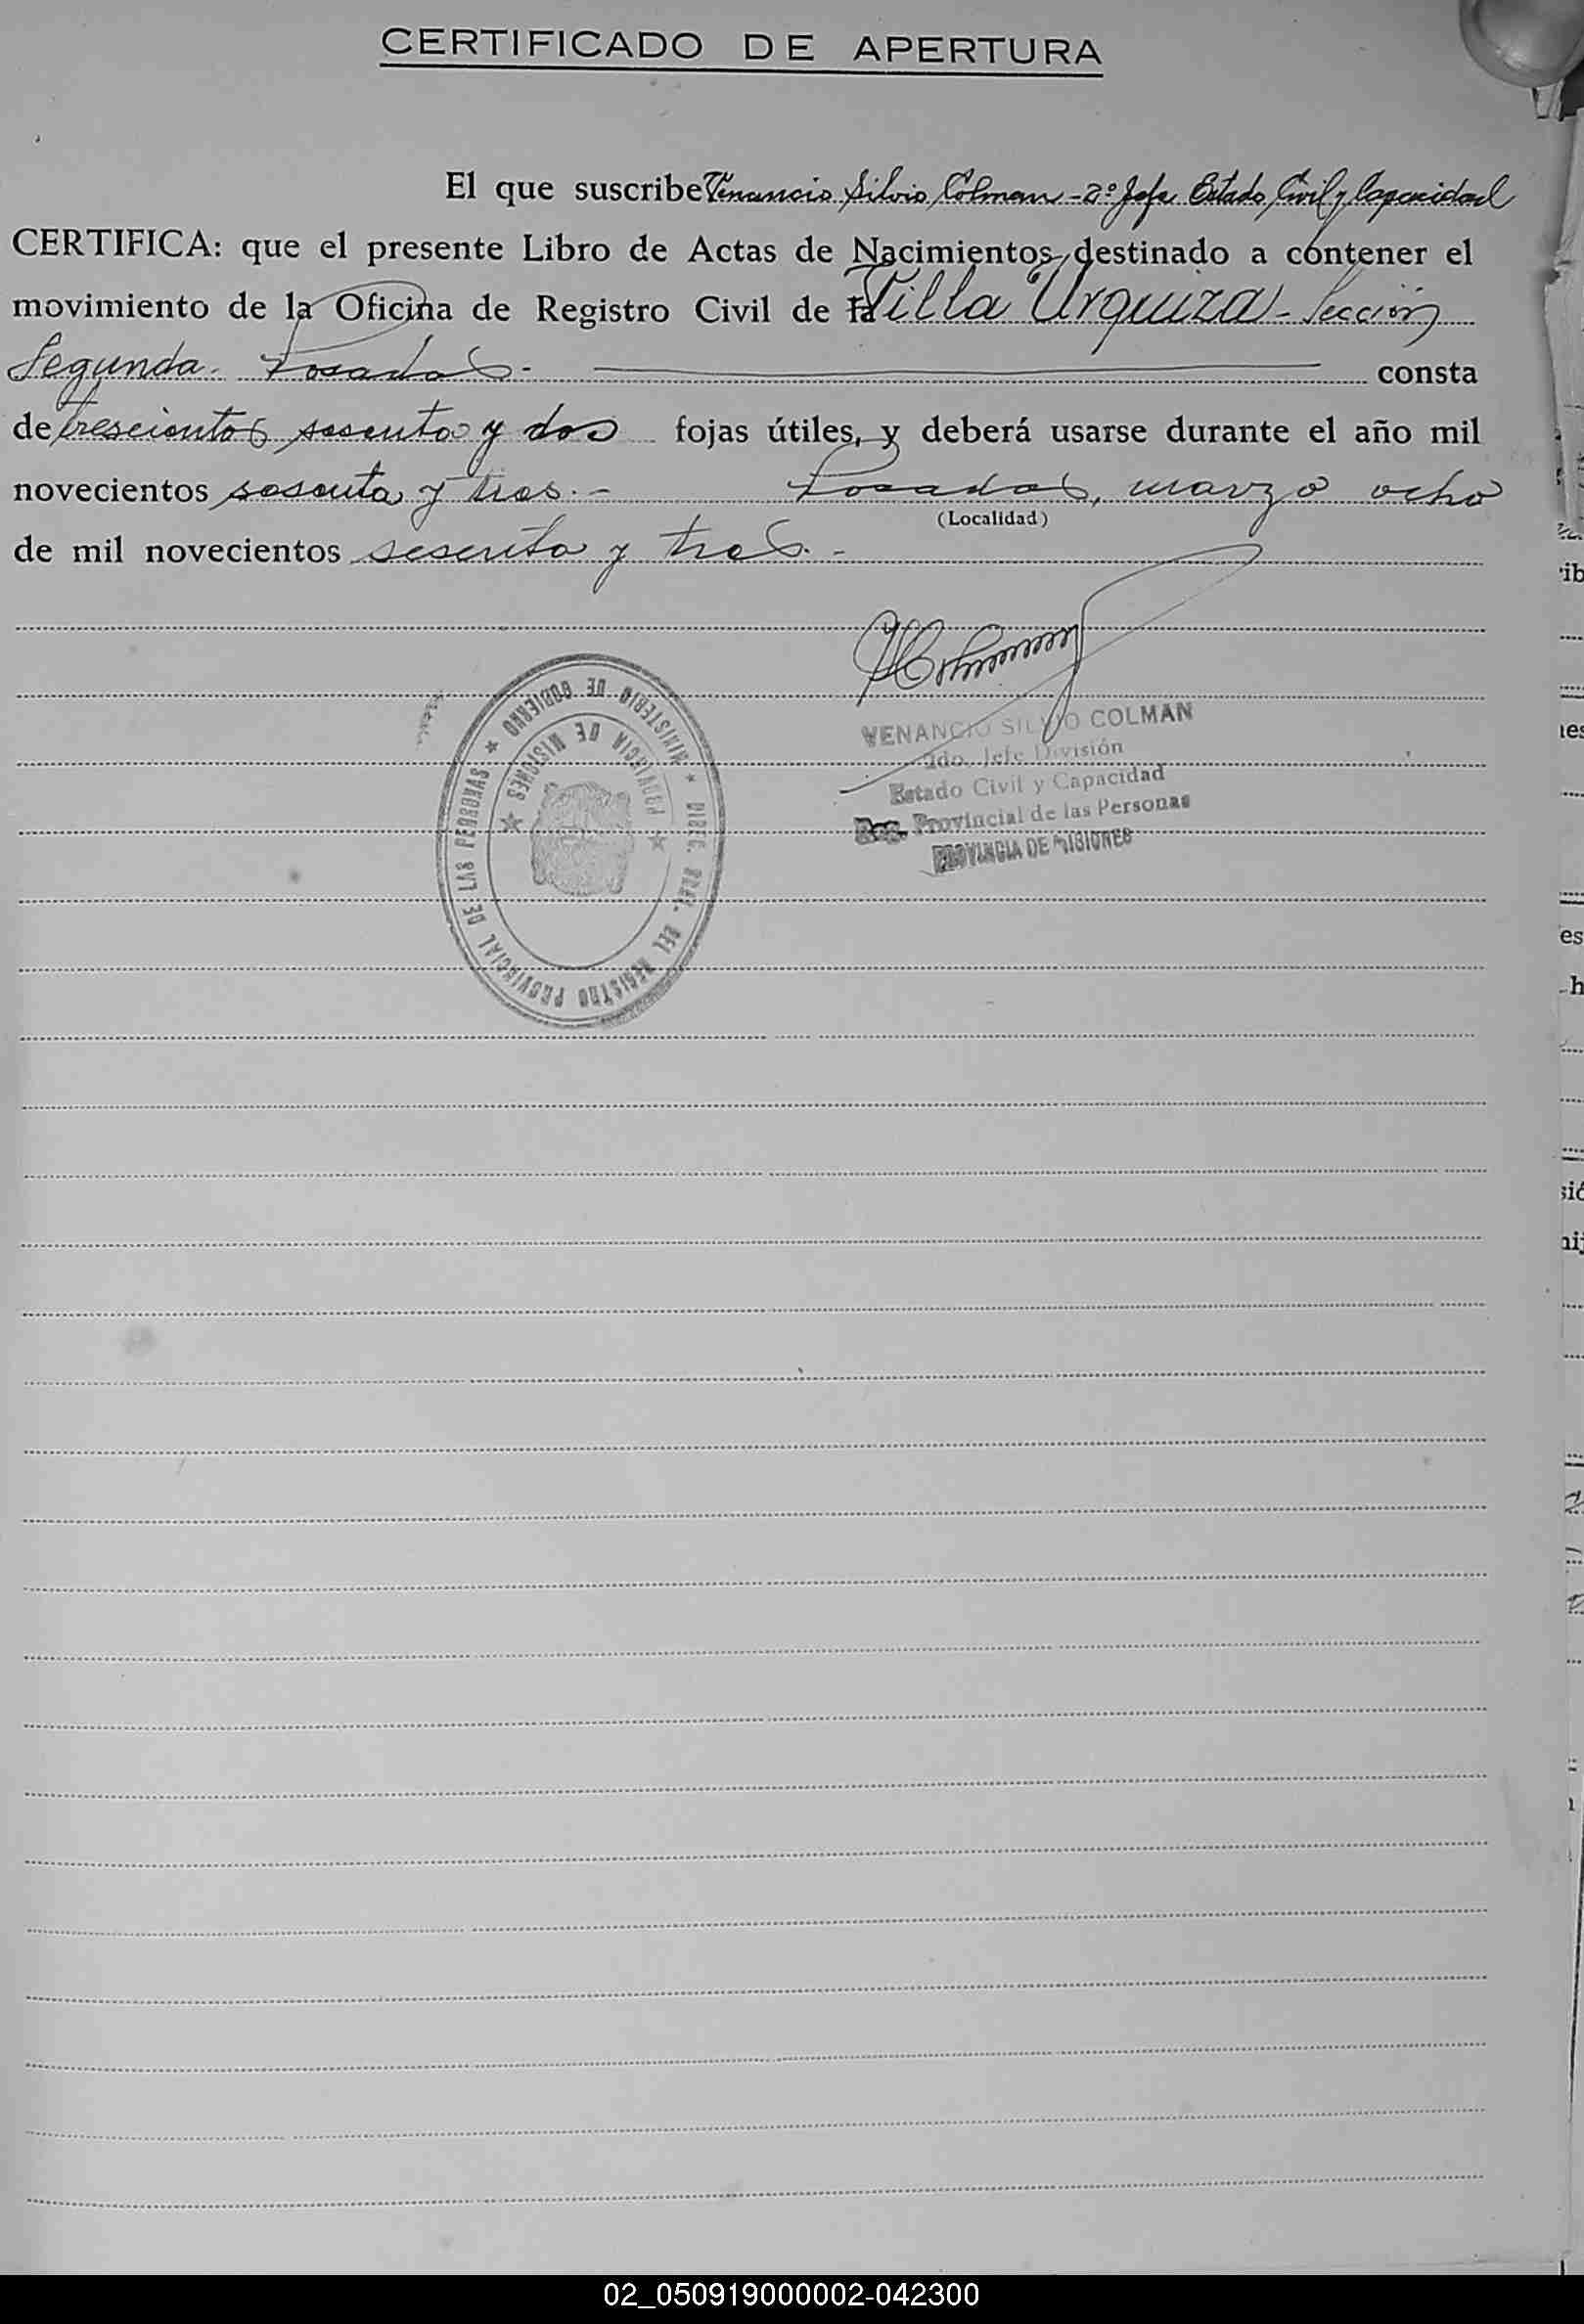 CERTIFICADO DE APERTURA
El que suscribe Venancio Silvio Colman - 2º Jefe Estado Civil y Capacidad
CERTIFICA: que el presente Libro de Actas de Nacimientos, destinado a contener el
movimiento de la Oficina de Registro Civil de la Villa Urquiza - Sección
Segunda - Posadas. - consta
de trescientos sesenta y dos fojas útiles, y deberá usarse durante el año mil
novecientos sesenta y tres. - Posadas, marzo ocho
(Localidad)
de mil novecientos sesenta y tres. -
VENANCIO SILVIO COLMAN
2do. Jefe División
Estado Civil y Capacidad
Reg. Provincial de las Personas
PROVINCIA DE MISIONES
★ MINISTERIO DE GOBIERNO ★ DIREC. GRAL. DEL REGISTRO PROVINCIAL DE LAS PERSONAS
★ PROVINCIA DE MISIONES ★
02_050919000002-042300